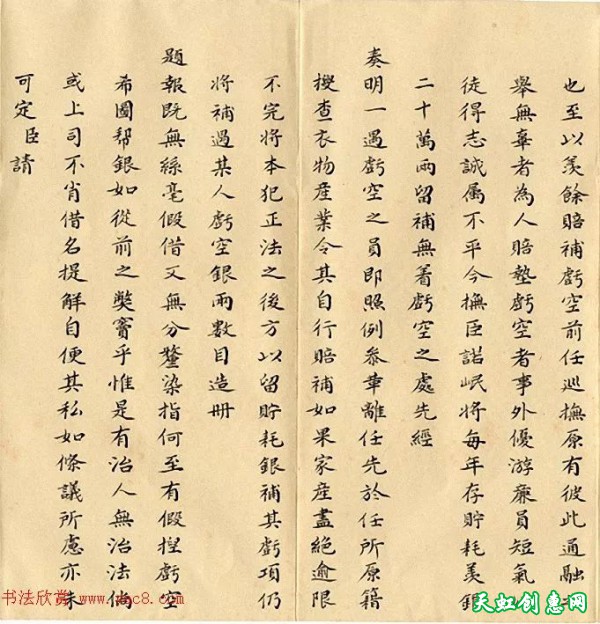 也至以羡餘賠補虧空前任巡撫原有彼此通融之
舉無辜者為人賠墊虧空者事外優游廉員短氣
徒得志誠属不平今撫臣諾岷將每年存貯耗羡銀
二十萬兩留補無着虧空之處先經
奏明一遇虧空之員即照例叅革離任先於任所原籍
搜查衣物産業令其自行賠補如果家産盡絶逾限
不完將本犯正法之後方以留貯耗銀補其虧項仍
將補過某人虧空銀兩數目造册
題報既無絲毫假借又無分釐染指何至有假捏虧空
希圖幇銀如從前之獘竇乎惟是有治人無治法倘
或上司不肖借名提解自便其私如條議所慮亦未
可定臣請
书法欣赏
天虹创惠网